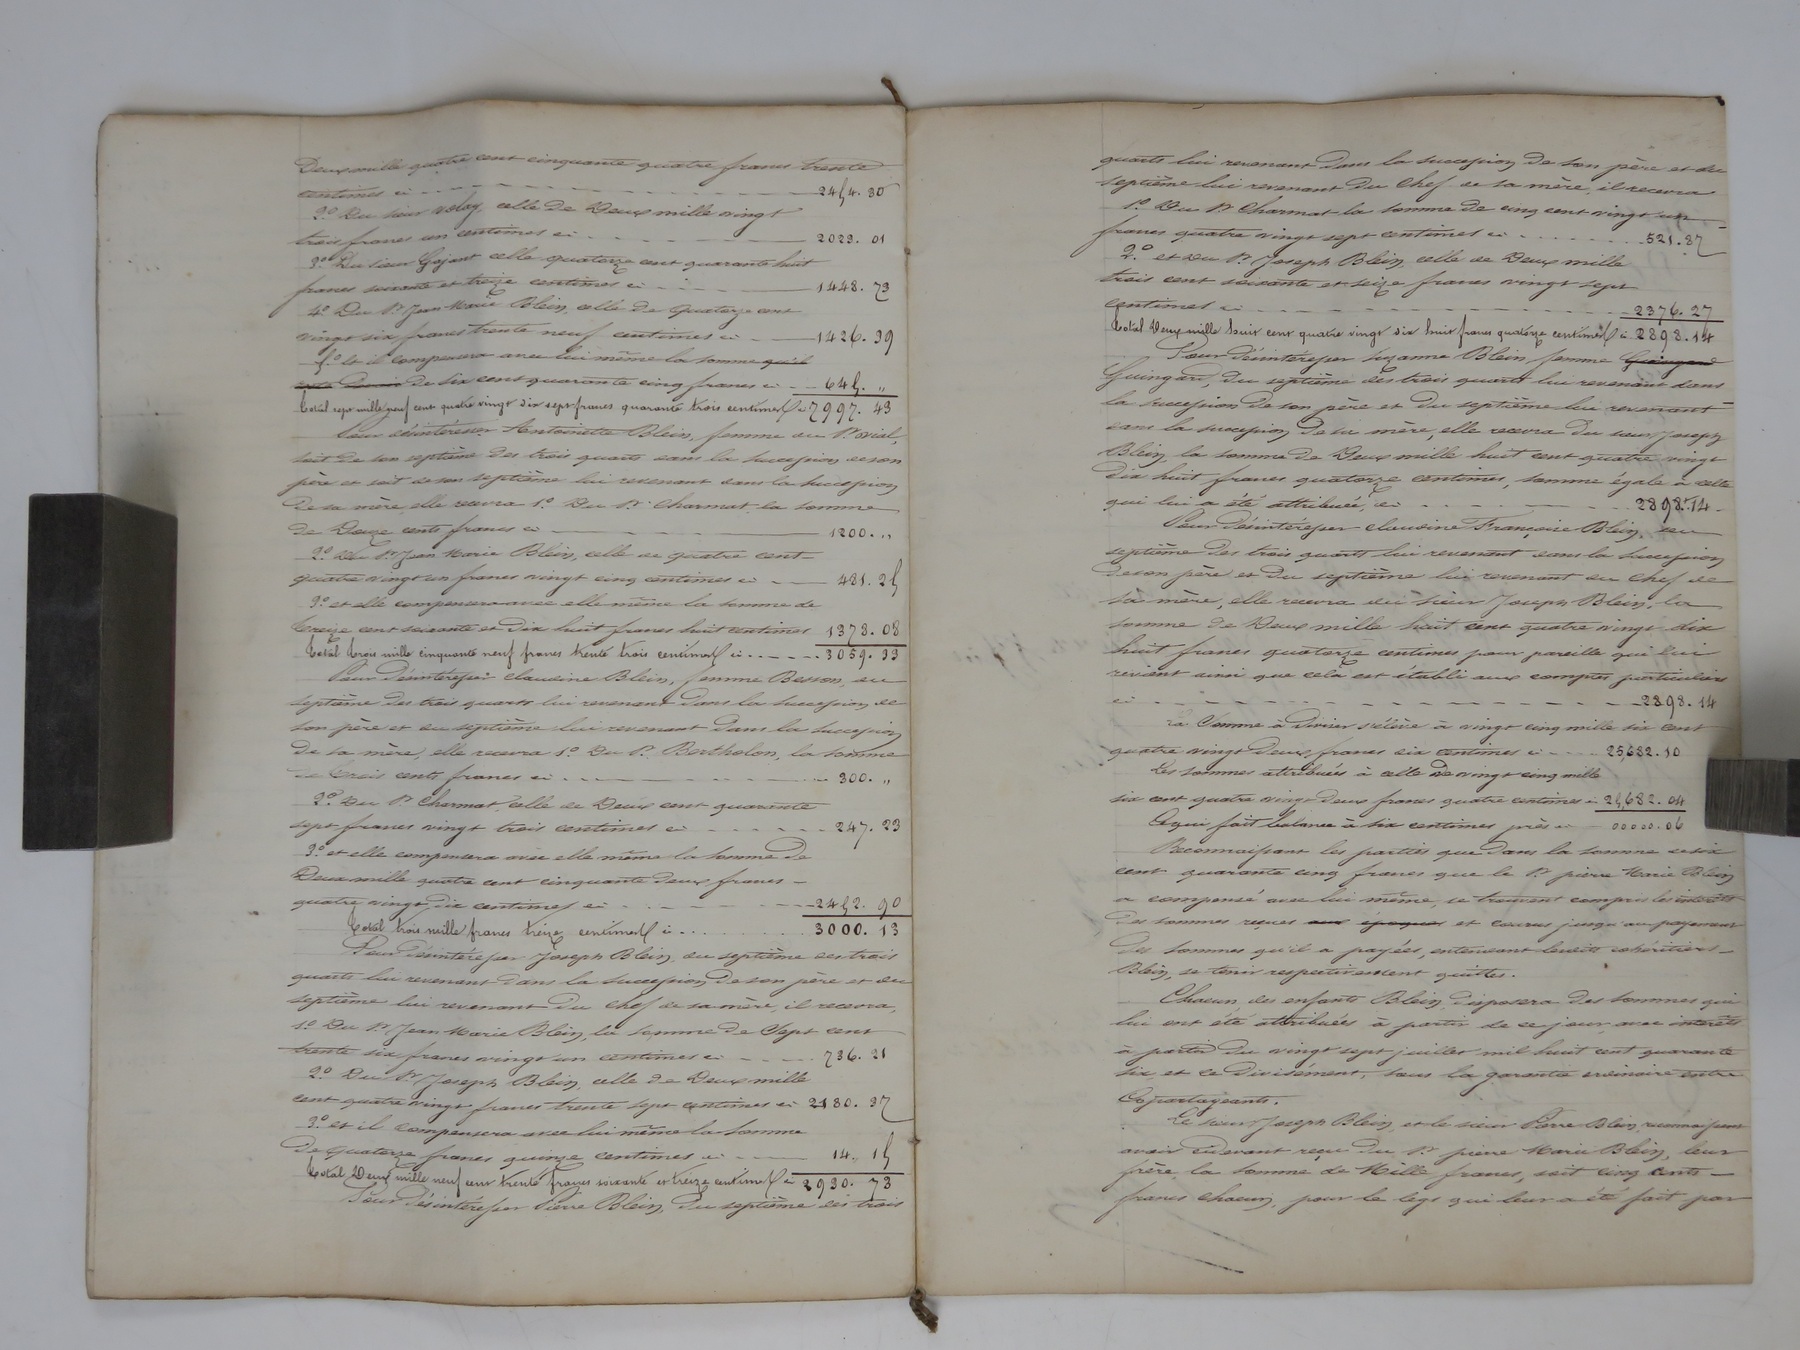 Deux mille quatre cent cinquante quatre francs trente
centimes ci 2454. 30
2º Du sieur Velay, celle de Deux mille vingt
trois francs un centimes ci 2023. 01
3º Du sieur Gojant celle quatorze cent quarante huit
francs soixante et treize centimes ci 1448. 73
4º Du Sr Jean Marie Blein, celle de quatorze cent
vingt six francs trente neuf centimes ci 1426. 39
5º et il compensera avec lui même la somme qu'il
de six cent quarante cinq francs ci 645. "
Total sept mille neuf cent quatre vingt dix sept francs quarante trois centimes ci 7997. 43
Pour désintéresser Antoinette Blein, femme du Sr Vial,
soit de son septième des trois quarts dans la succession de son
père et soit de son septième lui revenant dans la succession
de sa mère, elle recevra 1º Du Sr Charmat la somme
de Douze cents francs ci 1200. "
2º Du Sr Jean Marie Blein, celle de quatre cent
quatre vingt un francs vingt cinq centimes ci 481. 25
3º et elle compensera avec elle même la somme de
treize cent soixante et dix huit francs huit centimes 1378. 08
Total trois mille cinquante neuf francs trente trois centimes ci 3059. 33
Pour désintéresser Claudine Blein, femme Besson, du
septième des trois quarts lui revenant dans la succession de
son père et du septième lui revenant dans la succession
de sa mère, elle recevra 1º Du Sr Bertholon, la somme
de trois cents francs ci 300. "
2º Du Sr Charmat celle de Deux cent quarante
sept francs vingt trois centimes ci 247. 23
3º et elle compensera avec elle même la somme de
Deux mille quatre cent cinquante deux francs
quatre vingt dix centimes ci 2452. 90
Total trois mille francs treize centimes ci 3000. 13
Pour désintéresser Joseph Blein, du septième des trois
quarts lui revenant dans la succession de son père et du
septième lui revenant du chef de sa mère, il recevra,
1º Du Sr Jean Marie Blein, la somme de Sept cent
trente six francs vingt un centimes ci 736. 21
2º Du Sr Joseph Blein, celle de Deux mille
cent quatre vingt francs trente sept centimes ci 2180. 37
3º et il compensera avec lui même la somme
de quatorze francs quinze centimes ci 14. 15
Total Deux mille neuf cent trente francs soixante et treize centimes ci 2930. 73
Pour désintéresser Pierre Blein, du septième des trois
quarts lui revenant dans la succession de son père et du
septième lui revenant du chef de sa mère, il recevra
1º Du Sr Charmat la somme de cinq cent vingt un
francs quatre vingt sept centimes ci 521. 87
2º et Du Sr Joseph Blein, celle de Deux mille
trois cent soixante et seize francs vingt sept
centimes ci 2376. 27
Total Deux mille huit cent quatre vingt dix huit francs quatorze centimes ci 2898. 14
Pour désintéresser Suzanne Blein, femme Guingard
Guingard, du septième des trois quarts lui revenant dans
la succession de son père et du septième lui revenant
dans la succession de sa mère, elle recevra du sieur Joseph
Blein, la somme de Deux mille huit cent quatre vingt
dix huit francs quatorze centimes, somme égale à celle
qui lui a été attribuée, ci 2898. 14
Pour désintéresser Claudine Françoise Blein, du
septième des trois quarts lui revenant dans la succession
de son père et du septième lui revenant du chef de
sa mère, elle recevra du sieur Joseph Blein, la
somme de Deux mille huit cent quatre vingt dix
huit francs quatorze centimes pour pareille qui lui
revient ainsi que cela est établi aux comptes particuliers
ci 2898. 14
La Somme à diviser s'élève à vingt cinq mille six cent
quatre vingt deux francs dix centimes ci 25,682. 10
Les sommes attribuées à celle de vingt cinq mille
six cent quatre vingt deux francs quatre centimes ci 25,682. 04
Ce qui fait balance à six centimes près ci 00000. 06
Reconnaissant les parties que dans la somme de six
cent quarante cinq francs que le Sr pierre Marie Blein
a compensé avec lui même, se trouvent compris les intérêts
des sommes reçues aux époques et courus jusqu'au payement
des sommes qu'il a payées, entendant lesdits cohéritiers
Blein, se tenir respectivement quittes.
Chacun des enfants Blein disposera des sommes qui
lui ont été attribuées à partir de ce jour avec intérêts
à partir du vingt sept juillet mil huit cent quarante
six, et ce divisément, sous la garantie ordinaire entre
Copartageants.
Le sieur Joseph Blein, et le sieur Pierre Blein, reconnaissent
avoir cidevant reçu du Sr pierre Marie Blein, leur
frère la somme de Mille francs, soit cinq cents
francs chacun, pour le legs qui leur a été fait par